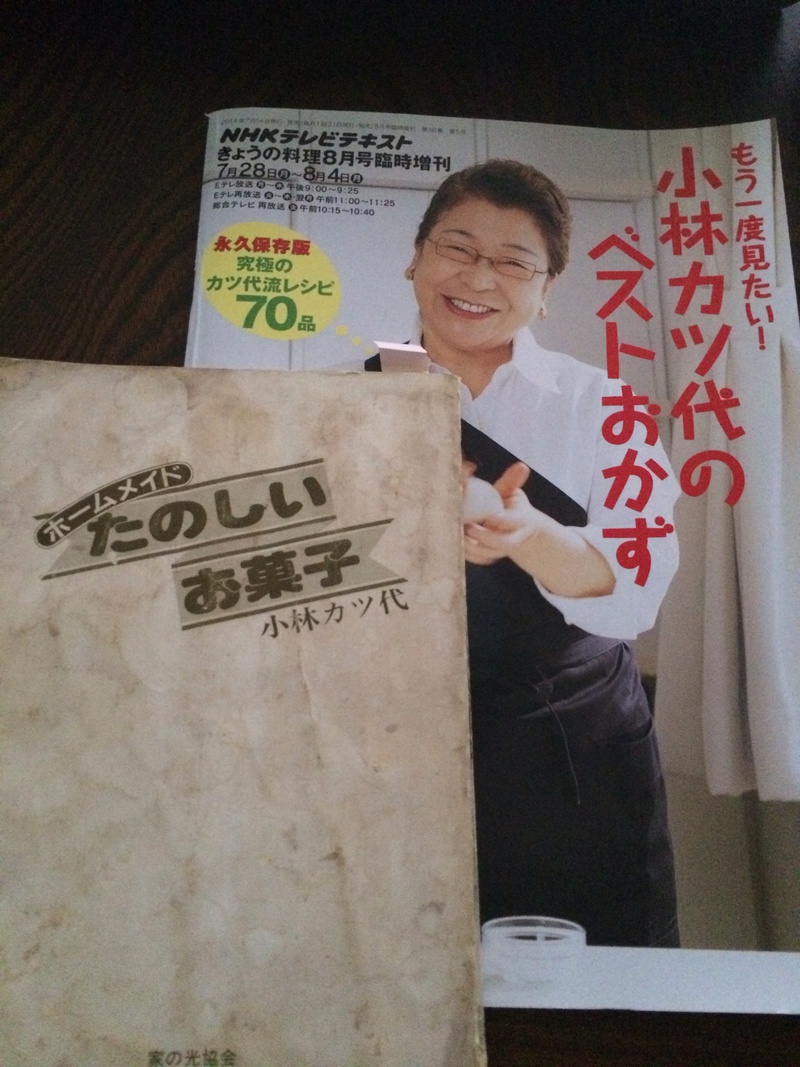 NHKテレビテキスト
きょうの料理8月号臨時増刊
7月28日月〜8月4日月
Eテレ放送 月〜木 午後9:00〜9:25
Eテレ再放送 火〜木・翌月 午前11:00〜11:25
総合テレビ 再放送 金 午前10:15〜10:40
永久保存版
究極の
カツ代流レシピ
70品
もう一度見たい!
小林カツ代の
ベストおかず
ホームメイド
たのしい
お菓子
小林カツ代
家の光協会